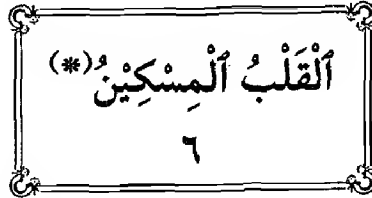 ٱلْقَلْبُ ٱلْمِسْكِيْنُ(*)
٦